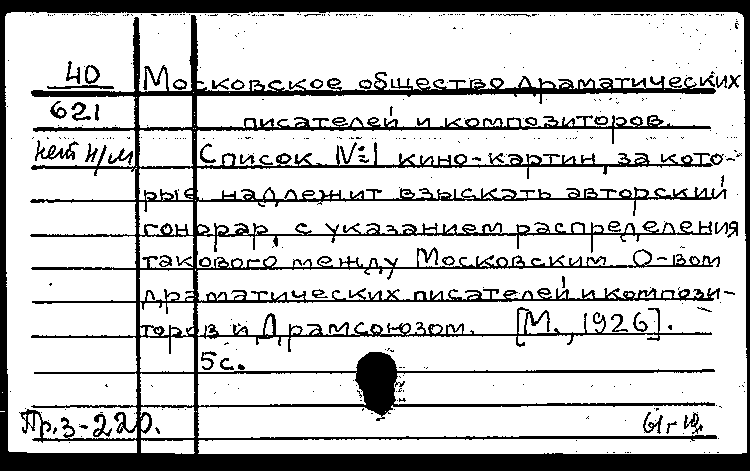 40 Московское общество драматических
621 писателей и композиторов.
нет н/м, Список №1 кино-картин, за кото-
рые надлежит взыскать авторский
гонорар, с указанием распределения
такового между Московским О-вом
драматических писателей и компози-
торов и Драмсоюзом. [М., 1926].
5с.
Пр.з-220.